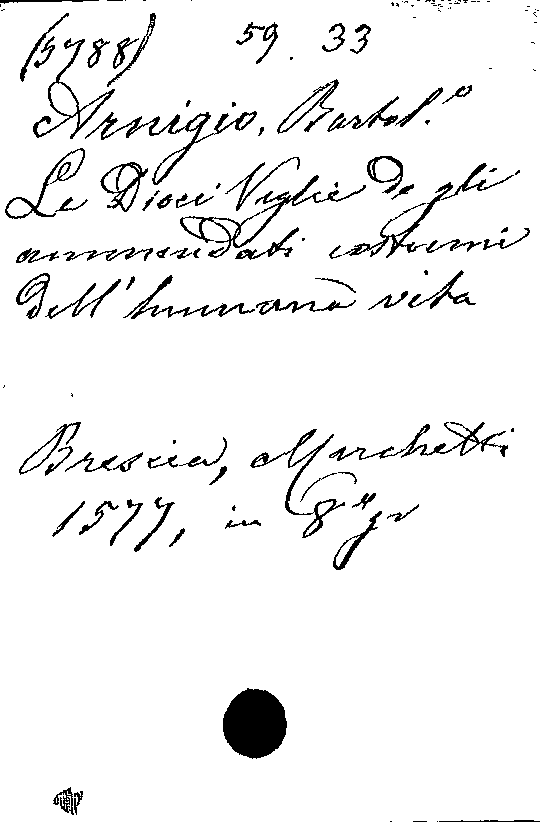 (5788) 59. 33
Arnigio, Bartol.º
Le Dieci Veglie de gli
ammendati costumi
dell' humana vita
Brescia, Marchetti
1577, in 8º gr